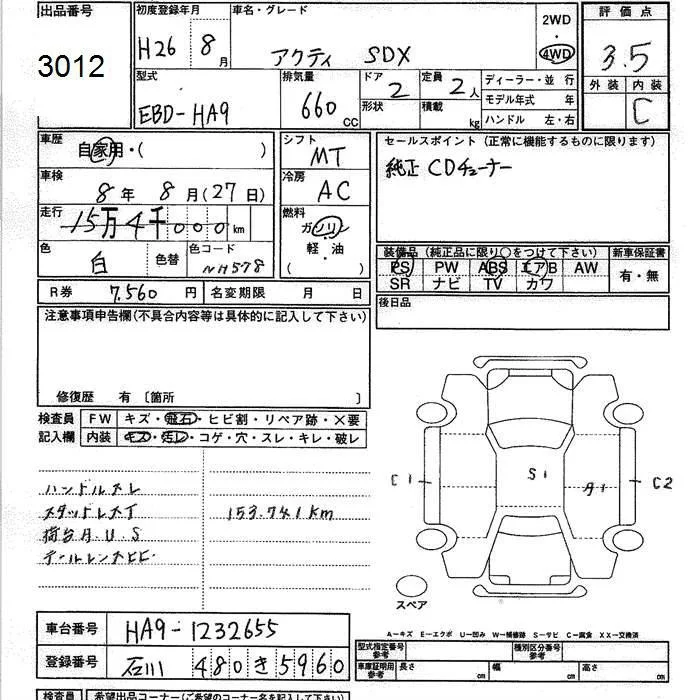 出品番号 初度登録年月 車名・グレード 2WD 評価点
3012 H26 8月 アクティ SDX 4WD 3.5
型式 排気量 ドア 定員 ディーラー・並行 外装 内装
EBD-HA9 660 CC 2 2人 モデル年式 年 C
形状 積載 kg ハンドル 左・右
車歴 自家用・( ) シフト MT セールスポイント (正常に機能するものに限ります)
車検 8年 8月(27日) 冷房 AC 純正 CDチューナー
走行 15万4千000km 燃料 ガソリン 軽・油 ( )
色 白 色替 色コード NH578
装備品 (純正品に限り○をつけて下さい) 新車保証書
PS PW ABS エアB AW 有・無
SR ナビ TV カワ
R券 7.560円 名変期限 月 日 後日品
注意事項申告欄(不具合内容等は具体的に記入して下さい)
修復歴 有 〔箇所 〕
検査員 FW キズ・飛石・ヒビ割・リペア跡・×要
記入欄 内装 キズ・汚レ・コゲ・穴・スレ・キレ・破レ
C1 S1 A1 C2
ハンドルスレ
スタッドレスT 153.741km
荷台A.U.S
テールレンズヒビ
スペア
車台番号 HA9-1232655
A-キズ E-エクボ U-凹み W-補修跡 S-サビ C-腐食 XX-交換済
登録番号 石川 480 き 5960
型式指定番号 参考 種別区分番号 参考
車庫証明用 参考 長さ cm 幅 cm 高さ cm
検査員 希望出品コーナー(ご希望のコーナー名を記入